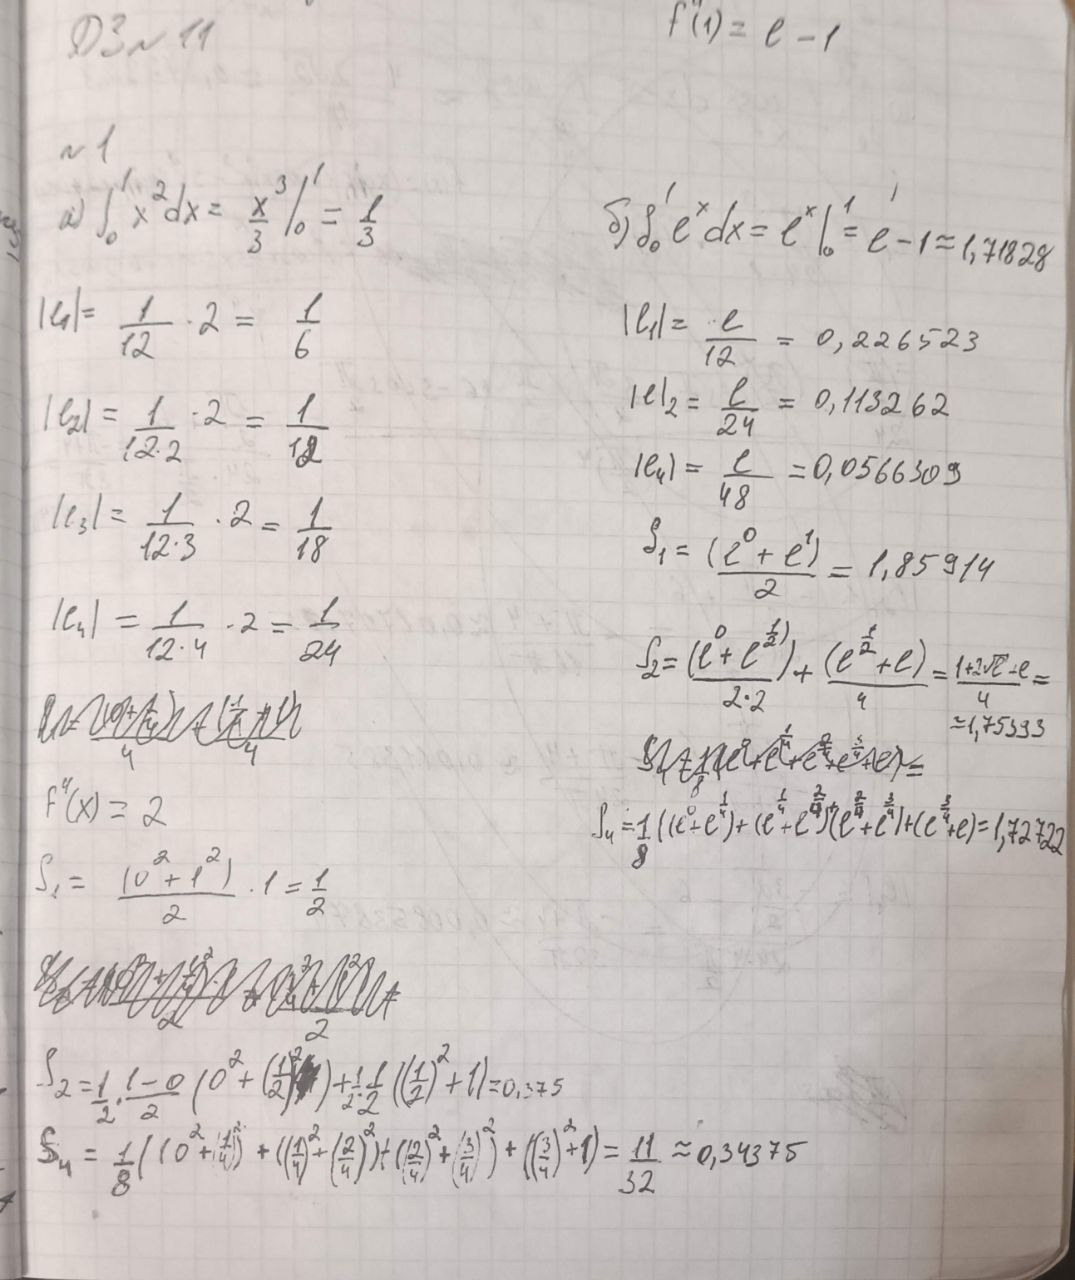 ДЗ №11
f''(1) = e - 1
№1
а) ∫₀¹ x² dx = x³/3 |₀¹ = 1/3
|e₁| = 1/12 · 2 = 1/6
|e₂| = 1/(12·2) · 2 = 1/12
|e₃| = 1/(12·3) · 2 = 1/18
|e₄| = 1/(12·4) · 2 = 1/24
f''(x) = 2
S₁ = (0² + 1²)/2 · 1 = 1/2
S₂ = 1/2 · (1-0)/2 (0² + (1/2)²) + 1/2 · 1/2 ((1/2)² + 1) = 0,375
S₄ = 1/8 ((0² + (1/4)²) + ((1/4)² + (2/4)²) + ((2/4)² + (3/4)²) + ((3/4)² + 1) = 11/32 ≈ 0,34375
б) ∫₀¹ eˣ dx = eˣ |₀¹ = e - 1 ≈ 1,71828
|e₁| = e/12 = 0,226523
|e|₂ = e/24 = 0,113262
|e₄| = e/48 = 0,0566309
S₁ = (e⁰ + e¹)/2 = 1,85914
S₂ = (e⁰ + e^(1/2))/(2·2) + (e^(1/2) + e)/4 = (1+2√e+e)/4 =
≈ 1,75393
S₄ = 1/8 ((e⁰ + e^(1/4)) + (e^(1/4) + e^(2/4)) + (e^(2/4) + e^(3/4)) + (e^(3/4) + e) = 1,72722